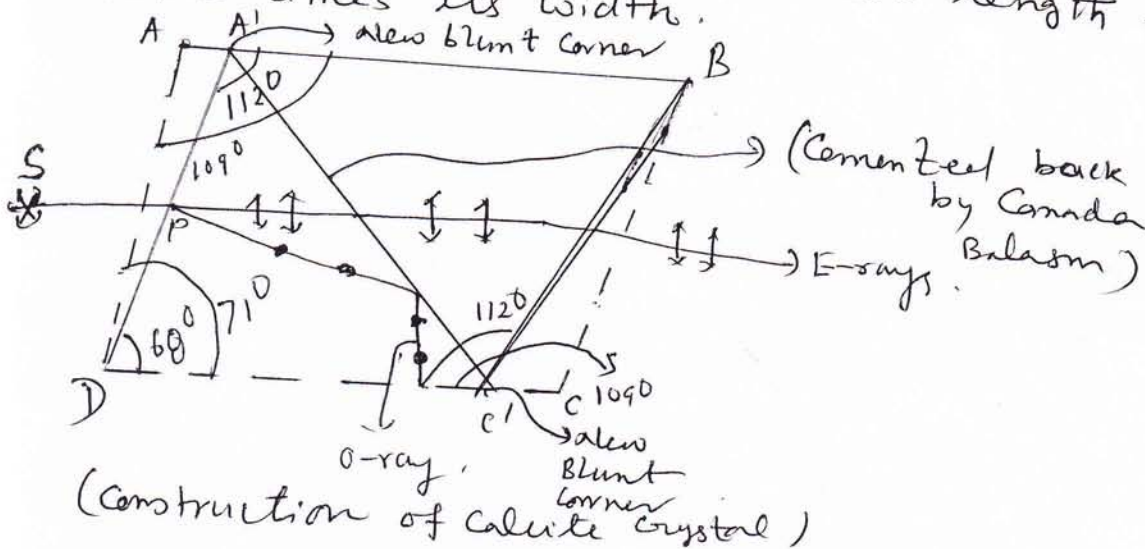 its width.
length
A A' → New blunt corner
B
112°
109°
S
P
(Cemented back
by Canada
Balasm)
E-rays.
71°
68°
112°
109°
D
C' C
New
Blunt
corner
O-ray.
(Construction of Calcite Crystal)